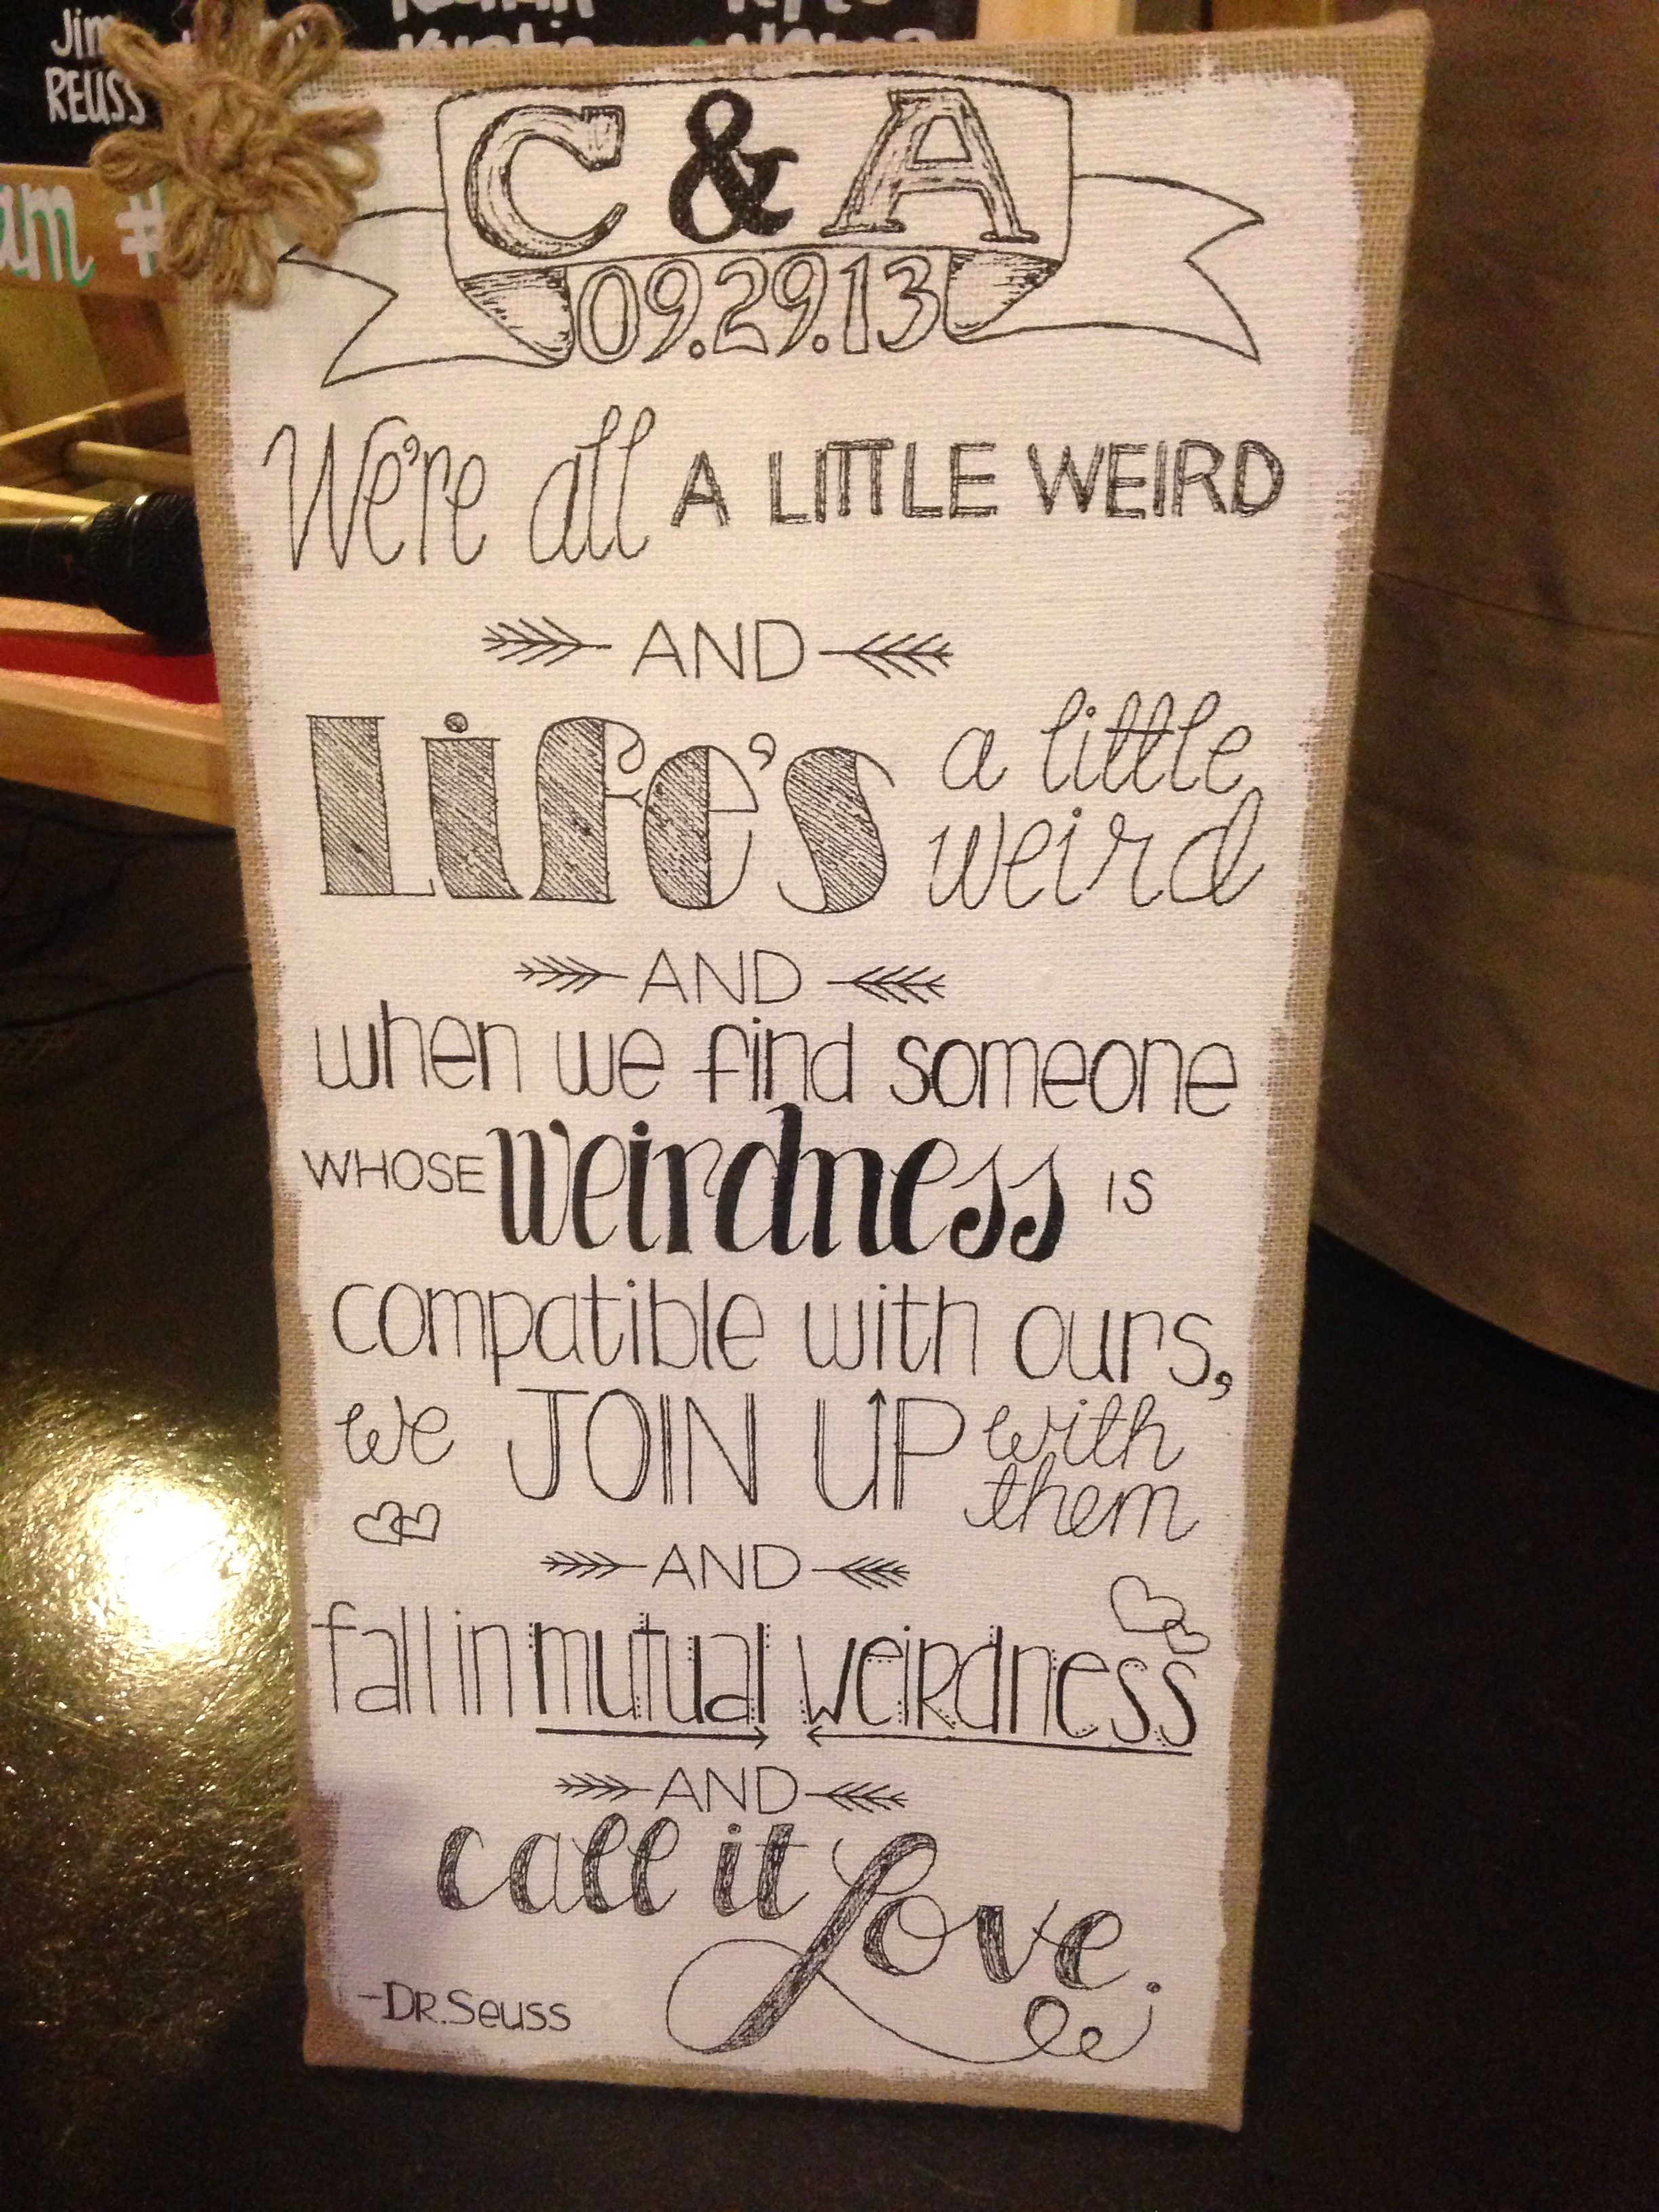 Jim
REUSS
am #
C & A
09.29.13
We're all A LITTLE WEIRD
AND
Life's a little
weird
AND
when we find someone
WHOSE weirdness IS
compatible with ours,
we JOIN UP with
them
AND
fall in mutual weirdness
AND
call it
Love.
-DR. Seuss